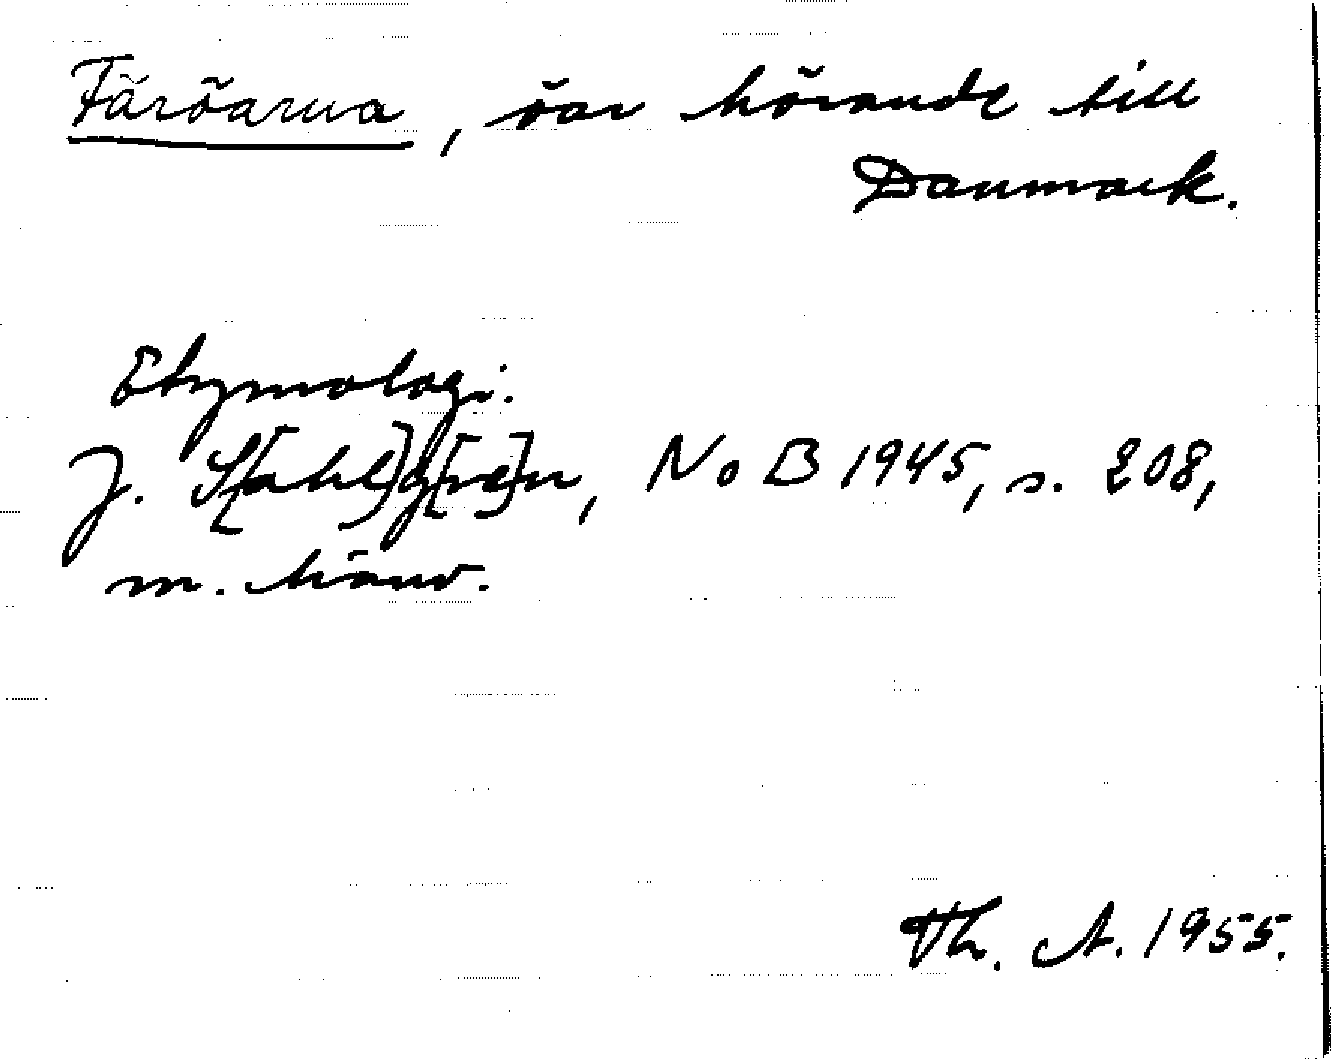 Färöarna, öar hörande till
Danmark.
Etymologi.
J. S[ahl]g[re]n, NoB 1945, s. 208,
m. hänv.
Th. A. 1955.